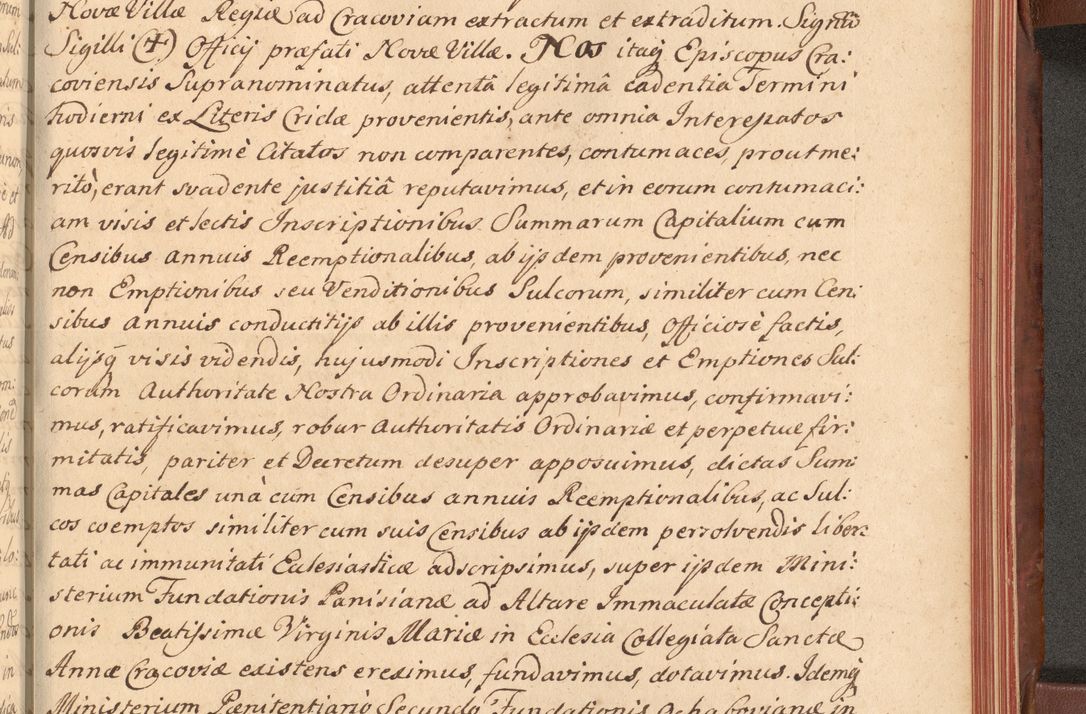 Novæ Villæ Regiæ ad Cracoviam extractum et extraditum. Signũ
Sigilli (✝) Officij præfati Novæ Villæ. Nos itaq̃ Episcopus Cra:
coviensis Supranominatus, attentâ legitimâ cadentia Termini
hodierni ex Literis Cridæ provenientis, ante omnia Interessatos
quosvis legitimè Citatos non comparentes, contumaces, prout me:
ritò, erant svadente justitiâ reputavimus, et in eorum contumaci:
am visis et lectis Inscriptionibus Summarum Capitalium cum
Censibus annuis Reemptionalibus, ab ijsdem provenientibus, nec
non Emptionibus seu Venditionibus Sulcorum, similiter cum Cen:
sibus annuis conductitijs ab illis provenientibus, Officiosè factis,
alijsq̃ visis videndis, hujusmodi Inscriptiones et Emptiones Sul:
corum Authoritate Nostra Ordinaria approbavimus, confirmavi:
mus, ratificavimus, robur Authoritatis Ordinariæ et perpetuæ fir:
mitatis, pariter et Decretum desuper apposuimus, dictas Sum:
mas Capitales unà cum Censibus annuis Reemptionalibus, ac Sul:
cos coemptos similiter cum suis Censibus ab ijsdem persolvendis liber:
tati ac immunitati Eclesiasticæ adscripsimus, super ijsdem Mini:
sterium Fundationis Panisianæ ad Altare Immaculatæ Concepti:
onis Beatissimæ Virginis Mariæ in Eclesia Collegiata Sanctæ
Annæ Cracoviæ existens ereximus, fundavimus, dotavimus. Idemq̃
Ministerium Pænitentiariò Secundo Fundationis Ochabovianæ in